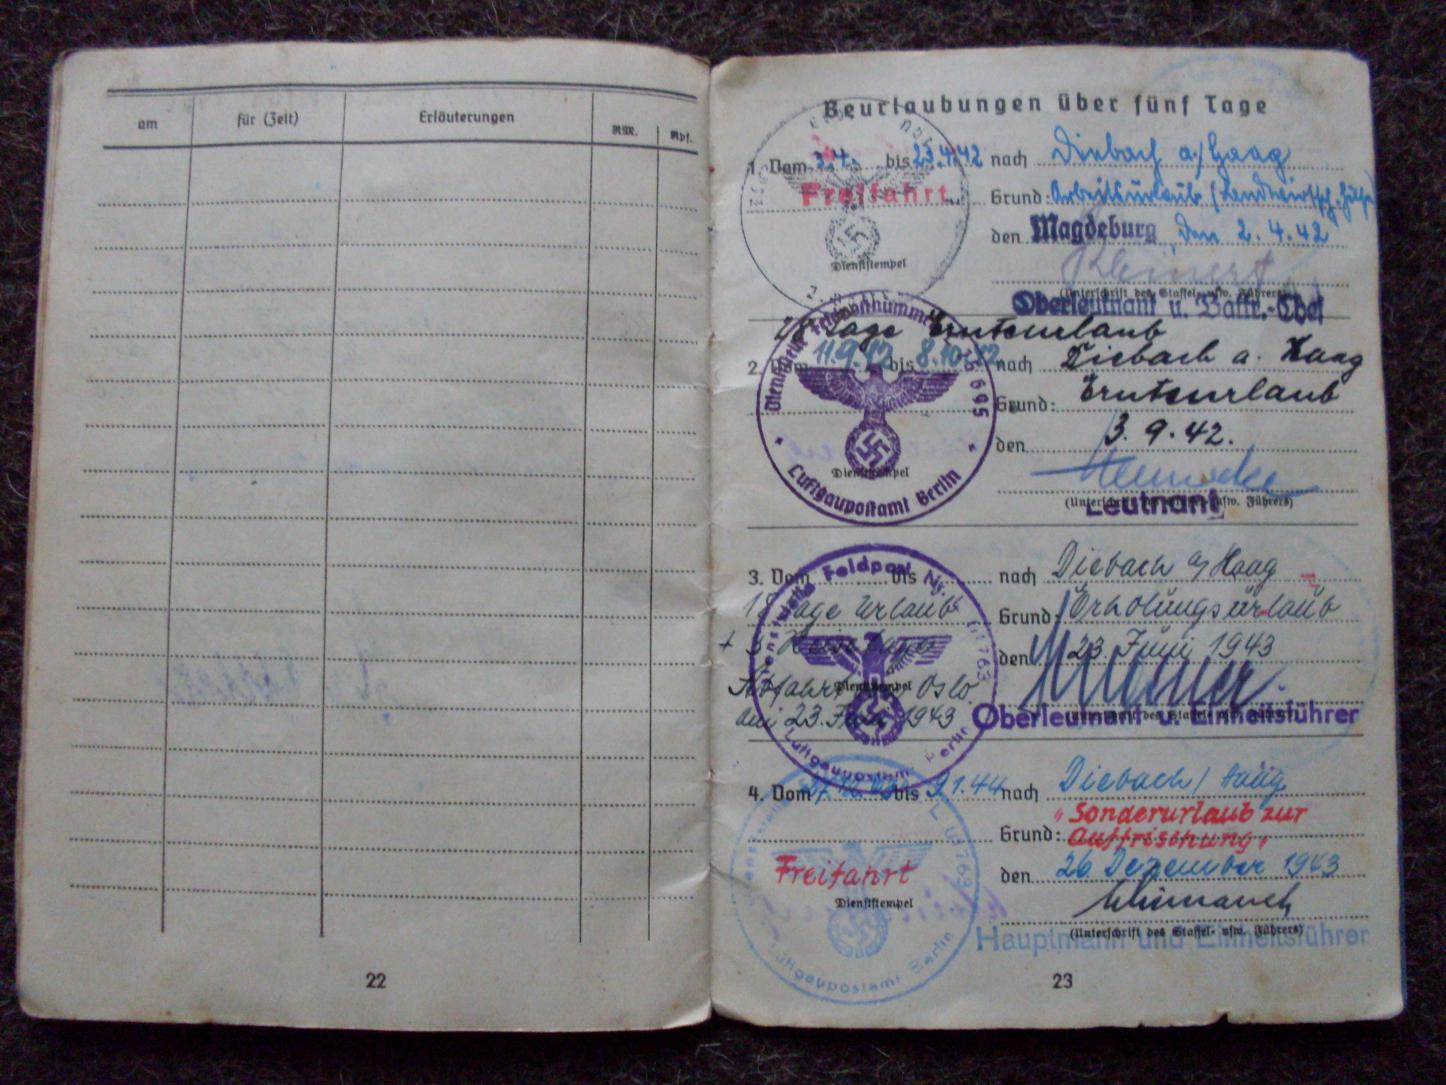 am für (Zeit) Erläuterungen RM. Rpf.
22
Beurlaubungen über fünf Tage
1. Vom 3.4. bis 23.4.42 nach Diebach a/Haag
Freifahrt
Grund: Arbeitsurlaub (Landwirtsch. Hilfe)
den Magdeburg, den 2.4.42
Dienststempel
(Unterschrift des Staffel- usw. Führers)
Oberleutnant u. Battr.-Chef
28 Tage Ernteurlaub
2. Vom 11.9.42 bis 8.10.42 nach Diebach a. Haag
Grund: Ernteurlaub
den 3.9.42.
Dienststempel
(Unterschrift des Staffel- usw. Führers)
Leutnant
Dienststelle Feldpostnummer
Luftgaupostamt Berlin
3. Vom bis nach Diebach a/Haag
18 Tage Urlaub
Grund: Erholungsurlaub
+ 5 Reisetage
den 23 Juni 1943
Abfahrt Oslo
am 23. Juni 1943
Dienststempel
Oberleutnant u. Einheitsführer
Dienststelle Feldpost Nr.
Luftgaupostamt Berlin
4. Vom bis 9.1.44 nach Diebach/Haag
Grund: "Sonderurlaub zur
Auffrischung"
Freifahrt
den 26. Dezember 1943
Dienststempel
(Unterschrift des Staffel- usw. Führers)
Hauptmann und Einheitsführer
Luftgaupostamt Berlin
23